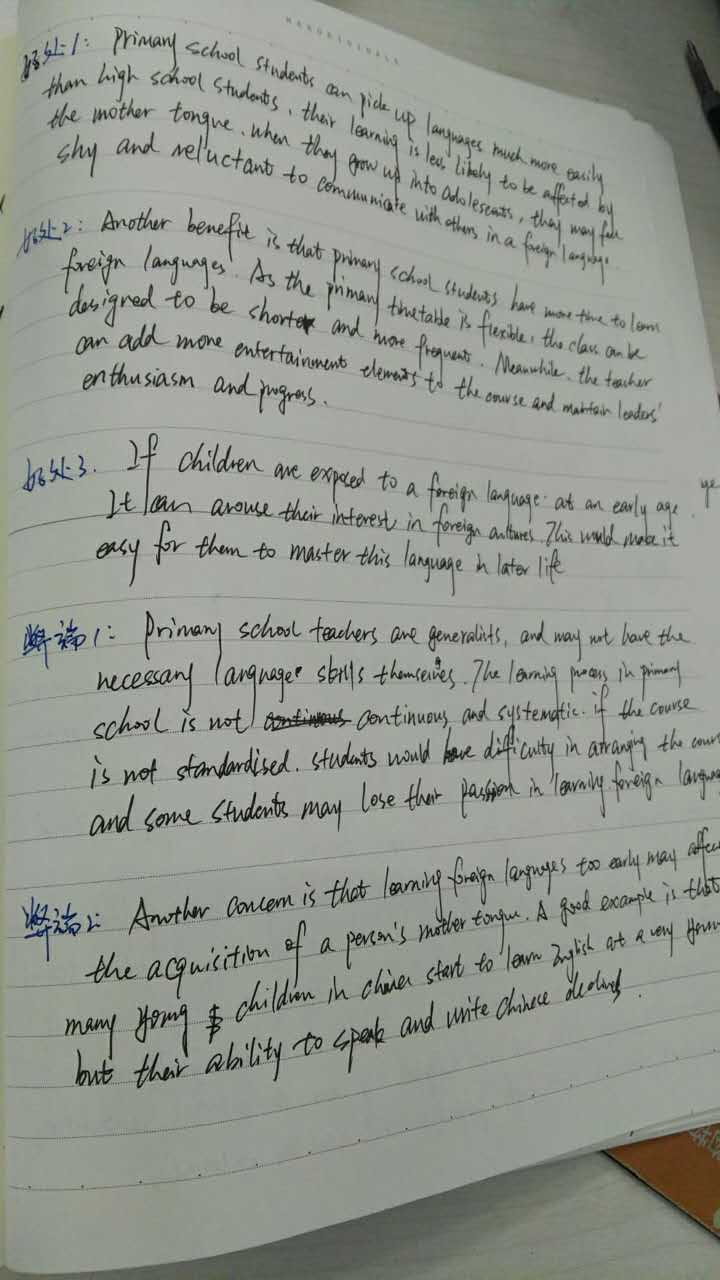 好处1: Primary school students can pick up languages much more easily
than high school students, their learning is less likely to be affected by
the mother tongue. when they grow up into adolescents, they may feel
shy and reluctant to communicate with others in a foreign language.
好处2: Another benefit is that primary school students have more time to learn
foreign languages. As the primary timetable is flexible, the class can be
designed to be shorter and more frequent. Meanwhile, the teacher
can add more entertainment elements to the course and maintain leaders'
enthusiasm and progress.
好处3. If children are exposed to a foreign language at an early age.
It can arouse their interest in foreign cultures. This would make it
easy for them to master this language in later life
弊端1: Primary school teachers are generalists, and may not have the
necessary language skills themselves. The learning process in primary
school is not continuous and systematic. if the course
is not standardised. students would have difficulty in arranging the cour
and some students may lose their passion in learning foreign langua
弊端2: Another concern is that learning foreign languages too early may affec
the acquisition of a person's mother tongue. A good example is that
many young children in china start to learn English at a very
but their ability to speak and write Chinese declined.